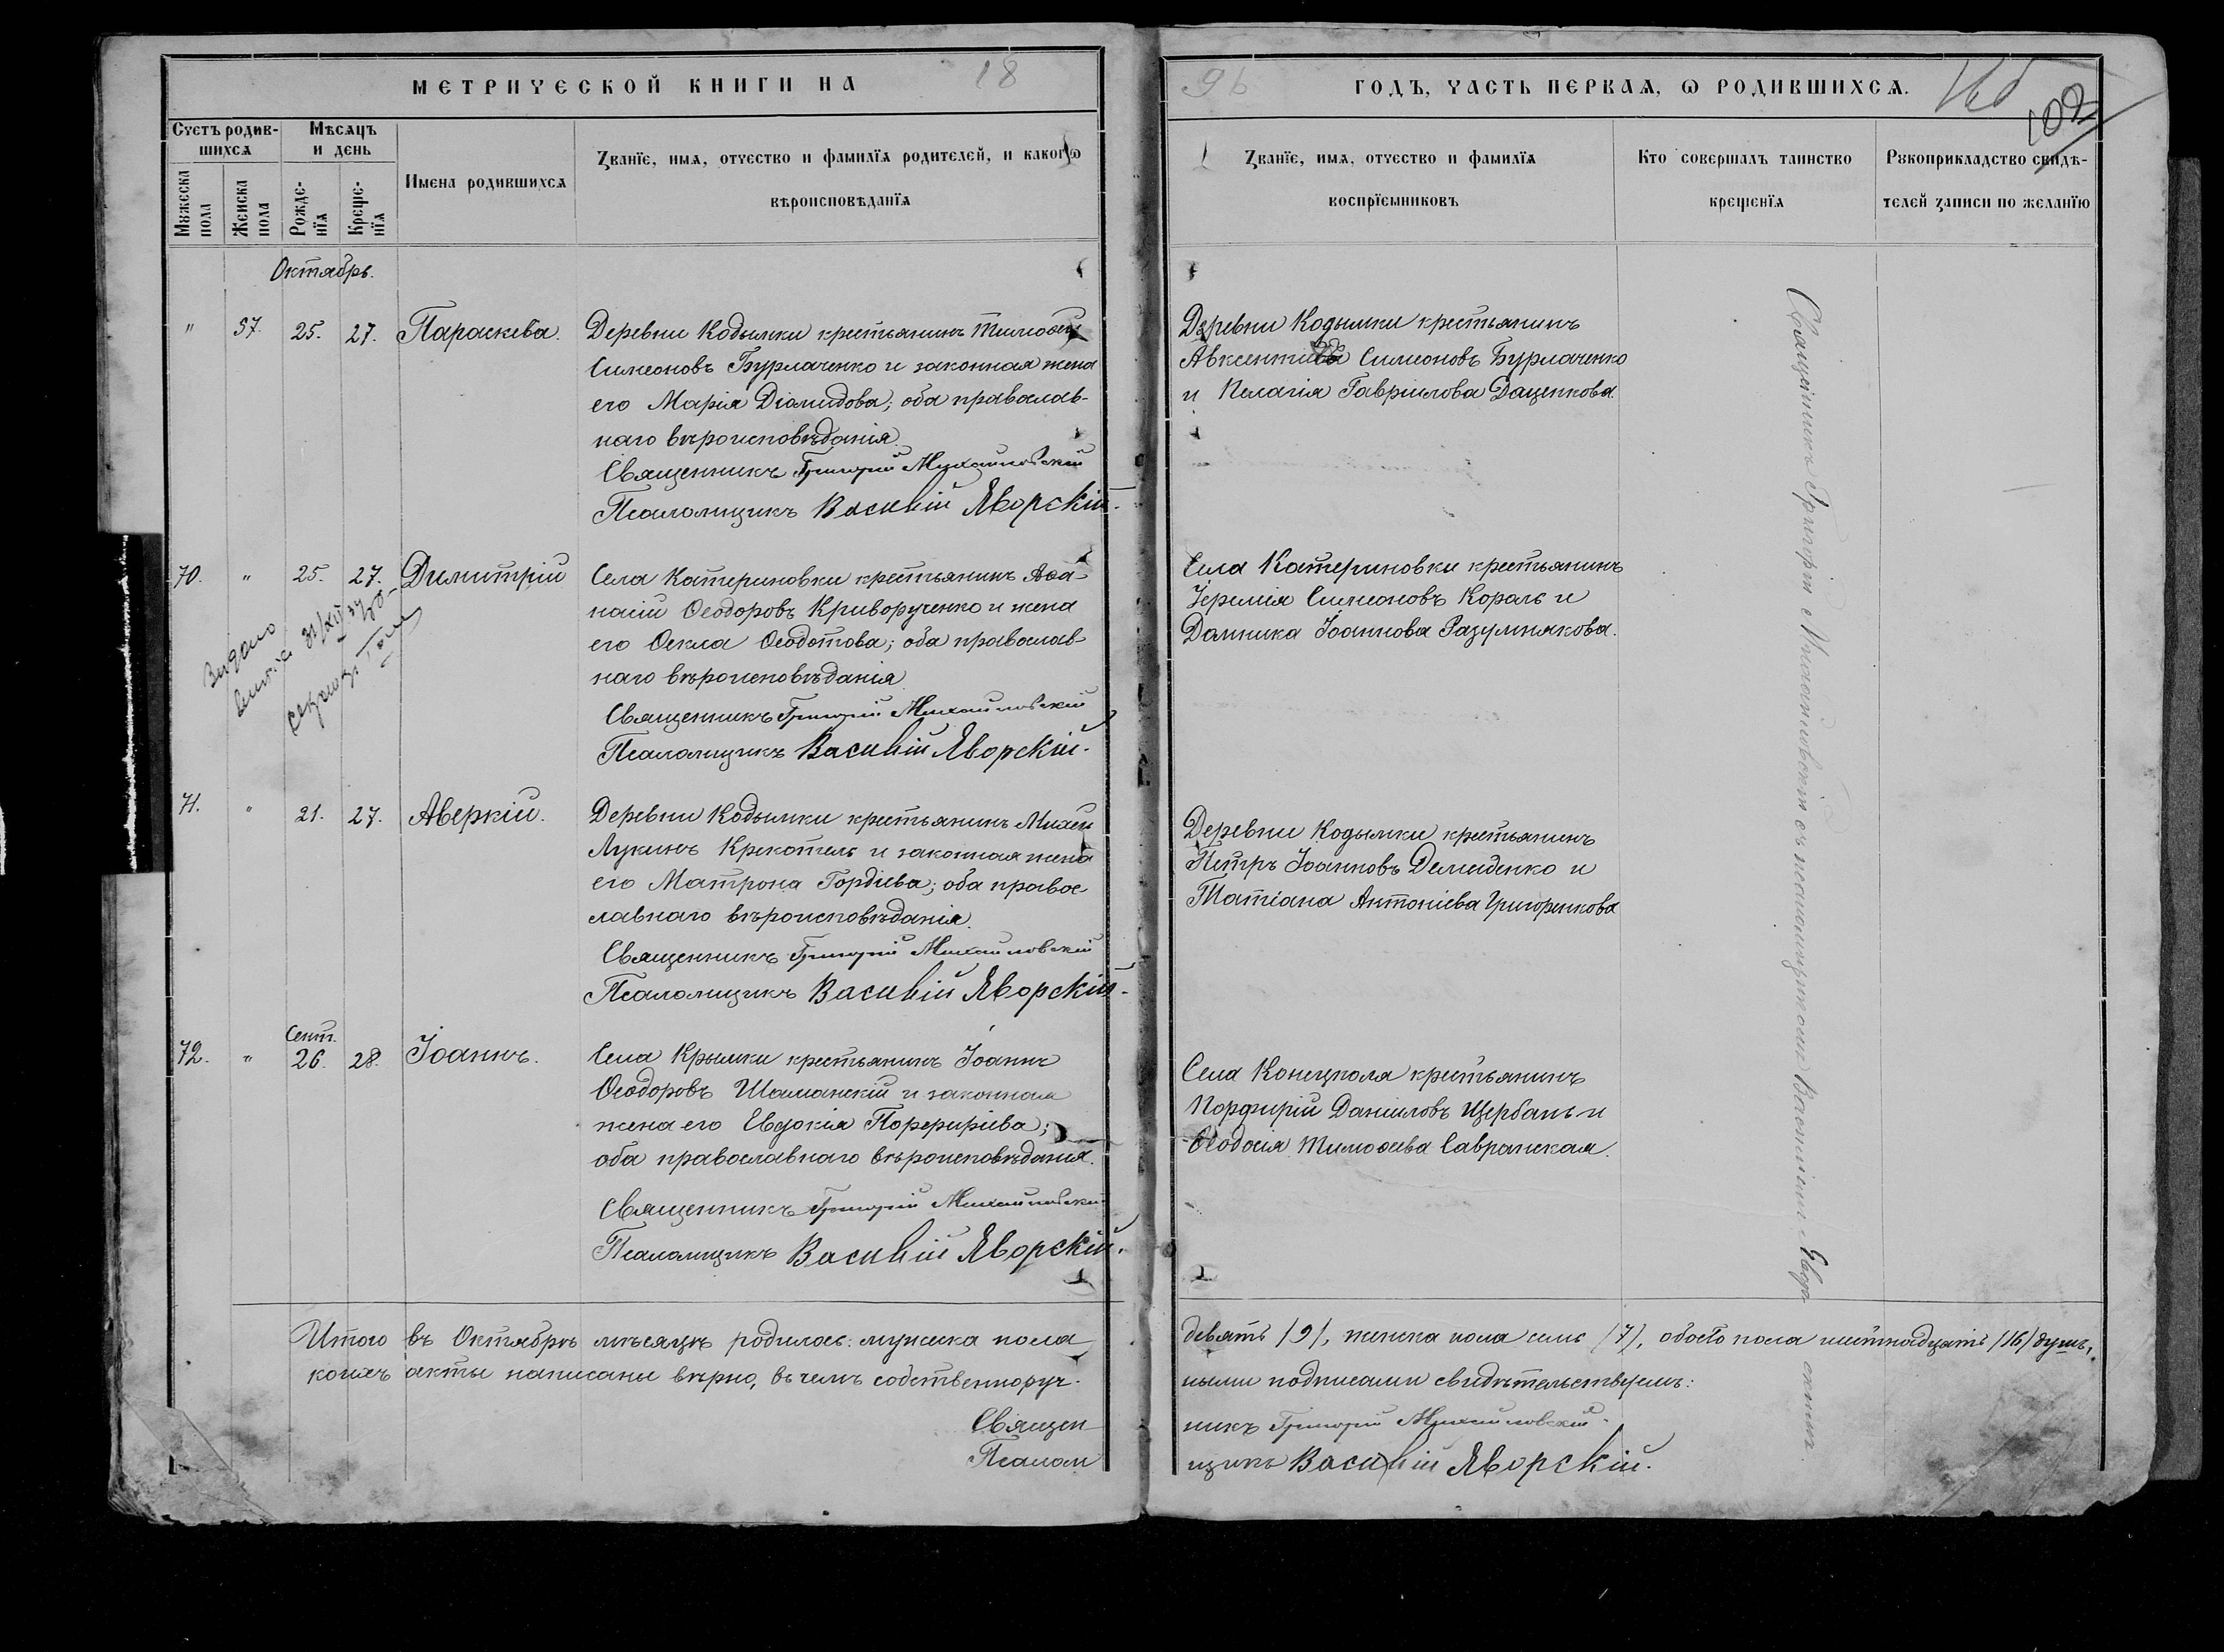 МЕТРИЧЕСКОЙ КНИГИ НА 18
96 ГОДЪ, ЧАСТЬ ПЕРВАѦ, Ѡ РОДИВШИХСѦ.
102
Счетъ родив-
шихсѧ
Мѣсѧцъ
и день
Мꙋжеска
пола
Женска
пола
Рожде-
нїѧ
Креще-
нїѧ
Имена родившихсѧ
Званїе, имѧ, отчество и фамилїѧ родителей, и какогѡ
вѣроисповѣданїѧ
Званїе, имѧ, отчество и фамилїѧ
воспрїемниковъ
Кто совершалъ таинство
крещенїѧ
Рꙋкоприкладство свидѣ-
телей записи по желанїю
Октябрь.
" 57. 25. 27. Параскева.
Деревни Кодымки крестьянинъ Тимоѳей
Симеоновъ Бурлаченко и законная жена
его Марія Діомидова; оба православ-
наго вѣроисповѣданія.
Священникъ Григорій Михайловскій
Псаломщикъ Василій Яворскій.
Деревни Кодымки крестьянинъ
Симеоновъ Бурлаченко
и Пелагія Гавріилова Даценкова.
70. " 25. 27. Димитрій
Выдано
Села Катериновки крестьянинъ Аѳа-
насій Ѳеодоровъ Криворученко и жена
его Ѳекла Ѳеодотова; оба православ-
наго вѣроисповѣданія
Священникъ Григорій Михайловскій
Псаломщикъ Василій Яворскій.
Села Катериновки крестьянинъ
Іеремія Симеоновъ Король и
Домника Іоаннова Разумнякова.
71. " 21. 27. Аверкій.
Деревни Кодымки крестьянинъ Михей
Лукинъ Крекотель и законная жена
его Матрона Гордіева; оба право-
славнаго вѣроисповѣданія.
Священникъ Григорій Михайловскій
Псаломщикъ Василій Яворскій.
Деревни Кодымки крестьянинъ
Петръ Іоанновъ Демиденко и
Татіана Антоніева Григоренкова
Сент.
72. " 26. 28. Іоаннъ.
Села Крымки крестьянинъ Іоаннъ
Ѳеодоровъ Шаманскій и законная
жена его Евдокія Порфиріева;
оба православнаго вѣроисповѣданія.
Священникъ Григорій Михайловскій
Псаломщикъ Василій Яворскій.
Села Конецполя крестьянинъ
Порфирій Даніиловъ Щербань и
Ѳеодосія Тимоѳеева Савранская.
Священникъ Григорій Михайловскій съ псаломщикомъ Василіемъ Явор-
скимъ.
Итого въ Октябрѣ мѣсяцѣ родилось: мужеска пола девять /9/, женска пола семь /7/, обоего пола шестнадцать /16/ душъ,
коихъ акты написаны вѣрно, въ чемъ собственноруч- ными подписами свидѣтельствуемъ:
Священ- никъ Григорій Михайловскій.
Псалом- щикъ Василій Яворскій.